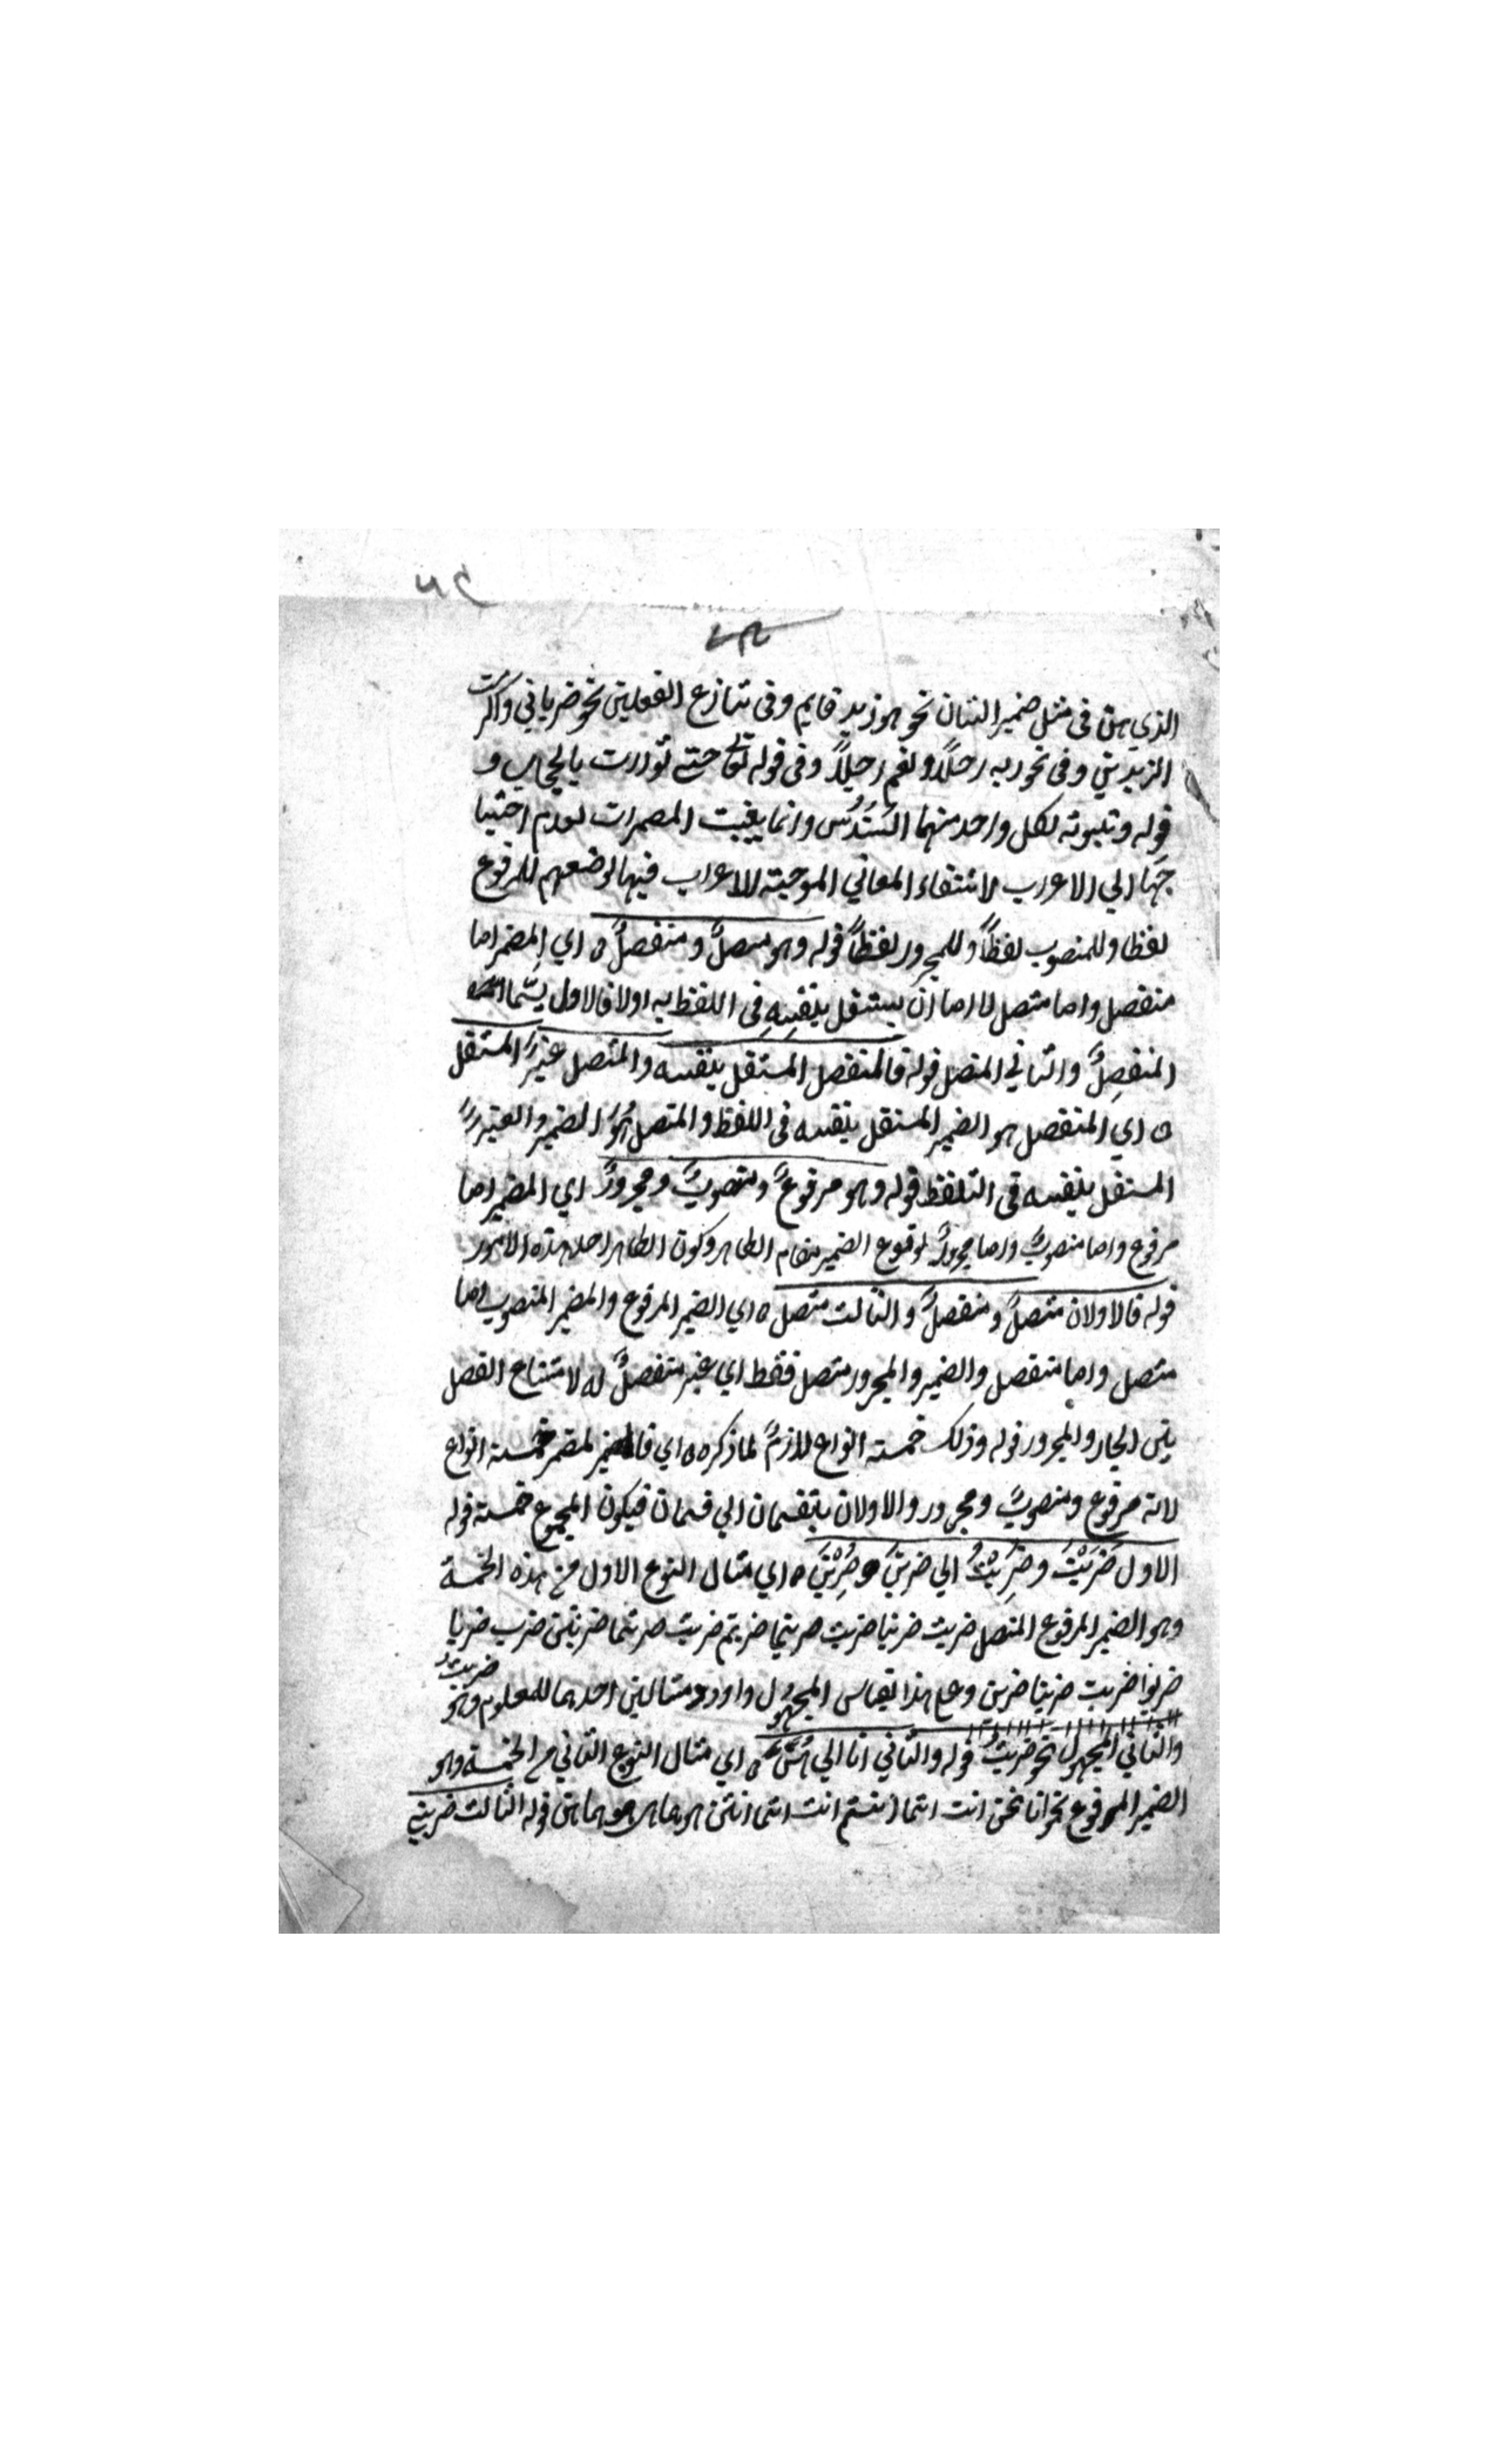 الذي هي في مثل ضمير الشان نحو هو زيد قايم وفي تنازع الفعلين نحو ضرباني واكرمت
الزيدين وفي نحو ربه رجلاً ونعم رجلاً وفي قوله تع حتى توارت بالحجاب و
قوله ولابويه لكل واحد منهما السُّدُس وانما بنيت المضمرات لعدم احتيا
جها الي الاعراب لانتفاء المعاني الموجبة للاعراب فيها لوضعهم للمرفوع
لفظا وللمنصوب لفظاً وللمجرور لفظاً قوله وهو متصلٌ ومنفصلٌ ه اي المضمر اما
منفصل واما متصل لانه اما ان يستقل بنفسِهِ في اللفظ به اولا فالاول يسمّا
المنفصِلَ والثاني المتصل قوله فالمنفصل المستقل بنفسه والمتصل غيرُ المستقل
ه اي المنفصل هو الضمير المستقل بنفسه في اللفظ والمتصل هُوَ الضمير والغير
المستقل بنفسه في التلفظ قوله وهو مرفوعٌ ومنصوبٌ ومجرورٌ اي المضمر اما
مرفوع واما منصوبٌ واما مجرورٌ لوقوع الضمير مقام الظاهر وكون الظاهر احد هذه الامور
قوله فالاولان متصلٌ ومنفصلٌ والثالث متصل ه اي الضمير المرفوع والمضمر المنصوب اما
متصل واما منفصل والضمير والمجرور متصل فقط اي غير منفصلٌ له لامتناع الفصل
بين الجار والمجرور قوله وذلك خمسة انواع للازمُ لما ذكره ه اي فالضمير لمضمر خمسة انواع
لانه مرفوع ومنصوبٌ ومجرور والاولان ينقسمان الي قسمان فيكون المجموع خمسة قوله
الاول ضَرَبْتَ وضُرِبْتُ الي ضربنَ وضُرِبْنَ ه اي مثال النوع الاول من هذه الخمسة
وهو الضمير المرفوع المتصل ضربت ضربنا ضربت ضربتما ضربتم ضربت ضربتما ضربتن ضرب ضربا
ضربوا ضربت ضربتا ضربن وعلي هذا يقاس المجهول واورد مثالين احدهما للمعلوم وهو ضربتُ
والثاني المجهول نحو ضربتُ قوله والثاني انا الي هُنّ ه اي مثال النوع الثاني من الخمسة وهو
الضمير المرفوع نحو انا نحن انت انتما انتم انت انتما انتن هو هما هم هي هما هن قوله الثالث ضربني